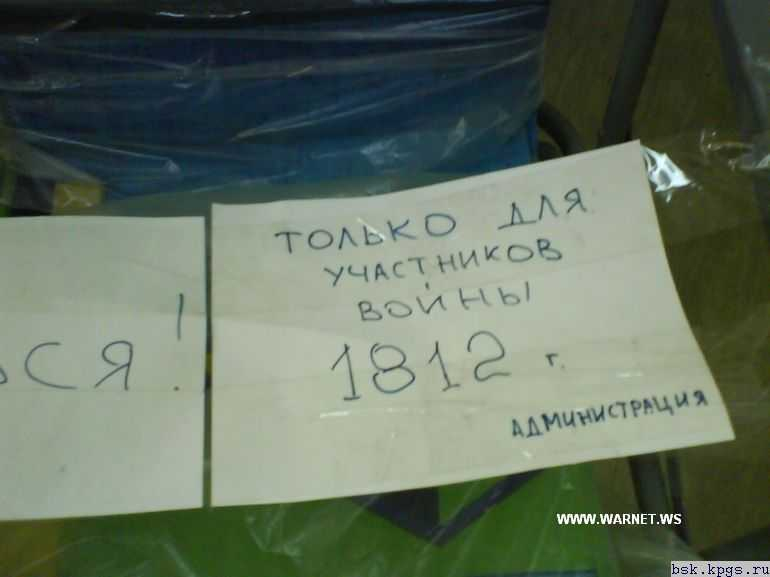 ТОЛЬКО ДЛЯ
УЧАСТНИКОВ
ВОЙНЫ
1812 г.
АДМИНИСТРАЦИЯ
ЬСЯ!
WWW.WARNET.WS
bsk.kpgs.ru